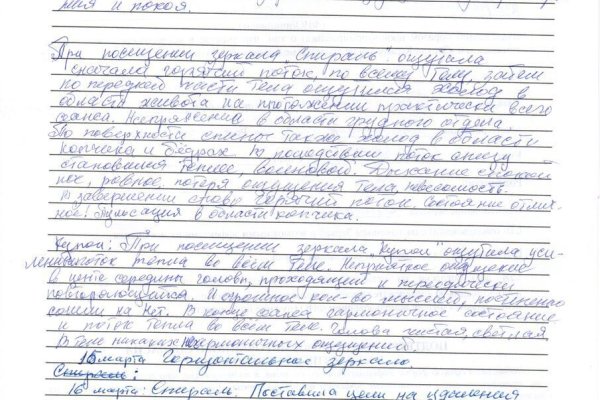 ния и покоя.
При посещении зеркала "Спираль" ощущала
сначала горячий поток, по всему телу, затем
по передней части тела ощущался холод в
области живота на протяжении практически всего
сеанса. Напряжение в области грудного отдела.
По поверхности спины также холод в области
копчика и бедрах. В последствии поток снизу
становился теплее, волновой. Дыхание спокой
ное, ровное, потеря ощущения тела, невесомость.
В завершении снова горячий поток. Состояние отлич-
ное. Пульсация в области копчика.
Купол: При посещении зеркала "Купол" ощутила уси-
ление поток тепла во всём теле. Неприятное ощущение
в центе середины головы, проходящий и переодически
повторяющийся. И огромное кол-во мыслей, постепенно
сошли на нет. В конце сеанса гармоничное состояние
и поток тепла во всём теле. Голова чистая, светлая,
В теле никаких негармоничных ощущений.
15 марта Горизонтальное зеркало.
Спираль:
16 марта: Спираль. Поставила цели на удаления